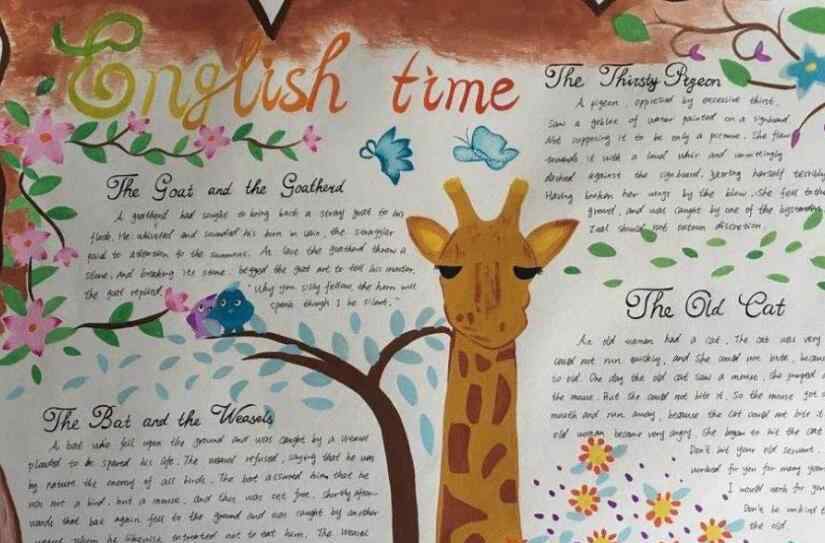 English time
The Goat and the Goatherd
A goatherd had sought to bring back a stray goat to his
flock. He whistled and sounded his horn in vain, the straggler
paid no attention to the summons. At last the goatherd threw a
stone, and breaking its horne, begged the goat not to tell his master.
the goat replied, "Why you silly fellow, the horn will
speak though I be silent."
The Bat and the Weasels
A bat who fell upon the ground and was caught by a weasel
pleaded to be spared his life. The weasel refused, saying that he was
by nature the enemy of all birds. The bat assured him that he
was not a bird, but a mouse, and thus was set free. Shortly after-
wards that bat again fell to the ground and was caught by another
whom he likewise entreated not to eat him. The weasel
The Thirsty Pigeon
A pigeon, oppressed by excessive thirst,
saw a goblet of water painted on a signboard.
Not supposing it to be only a picture. She flew
towards it with a loud whir and unwittingly
dashed against the signboard, jarring herself terribly
Having broken her wings by the blow. She fell to the
ground, and was caught by one of the bystanders
Zeal should not outrun discretion.
The Old Cat
An old woman had a cat. The cat was very
could not run quickly, and she could not bite, because
so old. One day the old cat saw a mouse, she jumped
the mouse. But she could not bite it. So the mouse got
mouth and ran away, because the cat could not bite it
old woman became very angry. She began to hit the cat
Don't hit your old servant.
worked for you for many year
I would work for you
Don't be unkind to
the old.